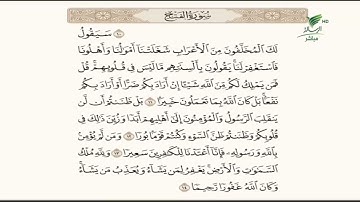 سُورَةُ الفَتْحِ
١٠ سَيَقُولُ
لَكَ ٱلْمُخَلَّفُونَ مِنَ ٱلْأَعْرَابِ شَغَلَتْنَآ أَمْوَٰلُنَا وَأَهْلُونَا
فَٱسْتَغْفِرْ لَنَا يَقُولُونَ بِأَلْسِنَتِهِم مَّا لَيْسَ فِى قُلُوبِهِمْ قُلْ
فَمَن يَمْلِكُ لَكُم مِّنَ ٱللَّهِ شَيْـًٔا إِنْ أَرَادَ بِكُمْ ضَرًّا أَوْ أَرَادَ بِكُمْ
نَفْعًۢا بَلْ كَانَ ٱللَّهُ بِمَا تَعْمَلُونَ خَبِيرًۢا ١١ بَلْ ظَنَنتُمْ أَن لَّن
يَنقَلِبَ ٱلرَّسُولُ وَٱلْمُؤْمِنُونَ إِلَىٰٓ أَهْلِيهِمْ أَبَدًا وَزُيِّنَ ذَٰلِكَ فِى
قُلُوبِكُمْ وَظَنَنتُمْ ظَنَّ ٱلسَّوْءِ وَكُنتُمْ قَوْمًۢا بُورًا ١٢ وَمَن لَّمْ يُؤْمِنۢ
بِٱللَّهِ وَرَسُولِهِۦ فَإِنَّآ أَعْتَدْنَا لِلْكَٰفِرِينَ سَعِيرًا ١٣ وَلِلَّهِ مُلْكُ
ٱلسَّمَٰوَٰتِ وَٱلْأَرْضِ يَغْفِرُ لِمَن يَشَآءُ وَيُعَذِّبُ مَن يَشَآءُ
وَكَانَ ٱللَّهُ غَفُورًا رَّحِيمًا ١٤
HD
مباشر